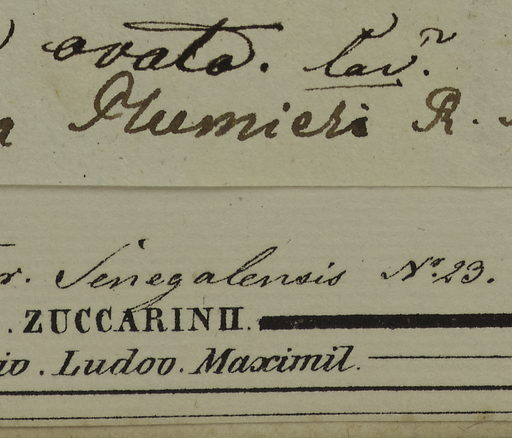 ovata. Cav.
Plumieri R.
r. Senegalensis No. 23.
. ZUCCARINII.
io. Ludov. Maximil.